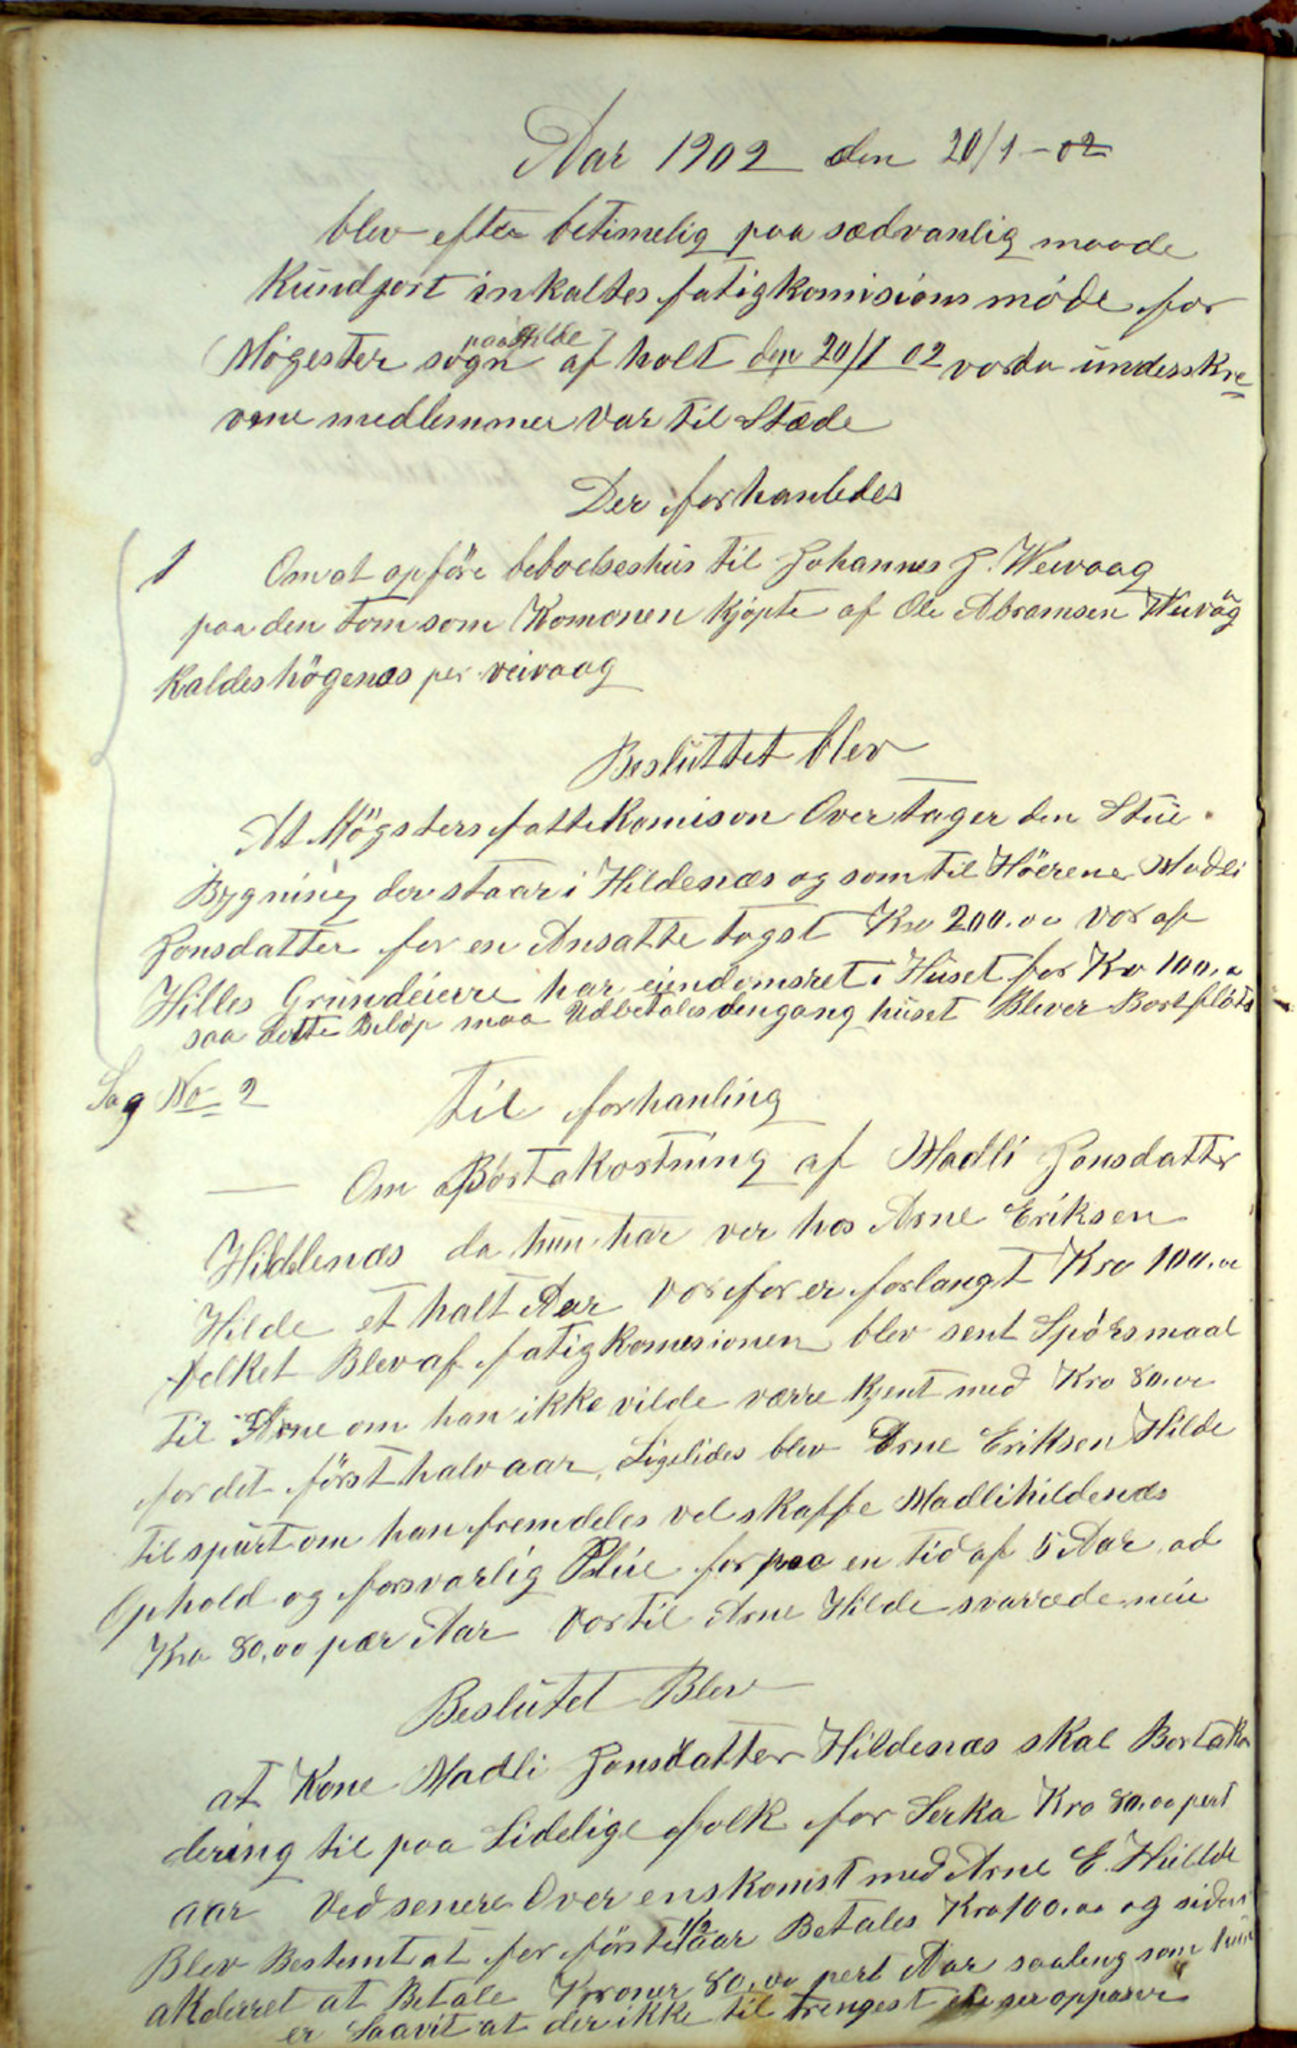 Aar 1902 den 20/1-02
blev efter betimelig paa sædvanlig maade
Kundjort inkaltes fatigkomisions møde for
Møgester sogn paa Hilde af holt den 20/1 02 vorda undesskre
vene medlemmer var til Stæde
Der forhanledes
1 Om at opføre beboelseshus til Johannes J. Weivaag
paa den tom som Komonen kjøpte af Ole Abramsen
kaldes högenæs per veivaag
Besluttet blev
At Mögsters fatte Komison Over tager den Stue
Bygning der staar i Hildenæs og som til Höerer Madli
Jonsdatter for en Ansatte tagst Kro 200.00 vor af
Hilles Grundeiere har eiendomsret i Huset for Kr 100.
saa dette Beløp maa Udbetales dengang huset Blever Bortfløts
Sag No 2 til forhanling
Om Bortakortning af Madli Jonsdatter
Hildenæs da hun har ver hos Arne Eriksen
Hilde et halt Aar vorfor er forlangt Kro 100.00
velket Blev af fatigkomesionen blev sent Spørsmaal
til Arne om han ikke vilde værre kjent med Kro 80.00
for det först halvaar, Ligelides blev Arne Eriksen Hilde
til spurt om han fremdeles vel skaffe Madli hildenæs
Ophold og forsvarlig Plie for paa en tid af 5 Aar ad
Kro 80,00 pær Aar vortil Arne Hilde svarede nei
Beslutet Blev
at Kone Madli Jonsdatter Hildenæs skal Bortakor
dering til paa Lidelige folk for Serka Kro 80.00 pert
aar Ved senere Over enskomst med Arne E. Hillde
Blev Bestemt at for første 1/2 aar Betales Kro 100.00 og siden
akderret at Betale Kroner 80.00 pert Aar saaleng som hun
er Saavit at der ikke til trengest opparer